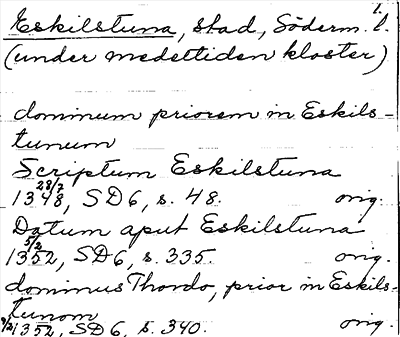 1.
Eskilstuna, stad, Söderm. l.
(under medeltiden kloster)
dominum priorem in Eskils-
tunum
Scriptum Eskilstuna
28/7
1348, SD6, s. 48. orig.
Datum aput Eskilstuna
5/2
1352, SD6, s. 335. orig.
dominus Thordo, prior in Eskils-
tunom
1352, SD6, s. 340. orig.